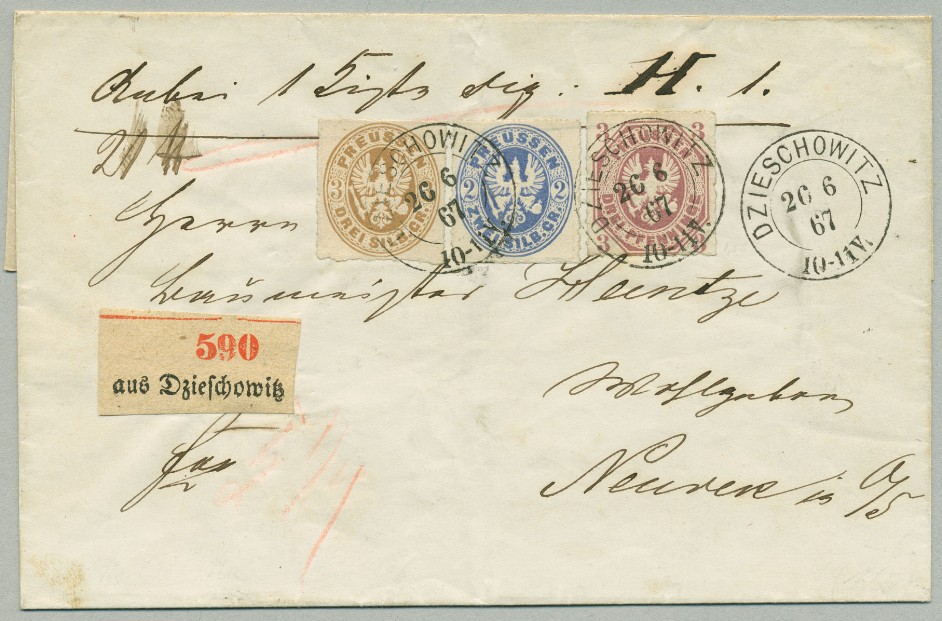 Anbei 1 Kiste sig: H. 1.
PREUSSEN
3
3
DREI SILB.GR.
PREUSSEN
2
2
ZWEI SILB.GR.
3
3
3
DZIESCHOWITZ
26 6
67
10-11V.
DZIESCHOWITZ
26 6
67
10-11V.
DZIESCHOWITZ
26 6
67
10-11V.
Herrn
Baumeister Heintze
590
aus Dzieschowitz
Wohlgeboren
in O/S